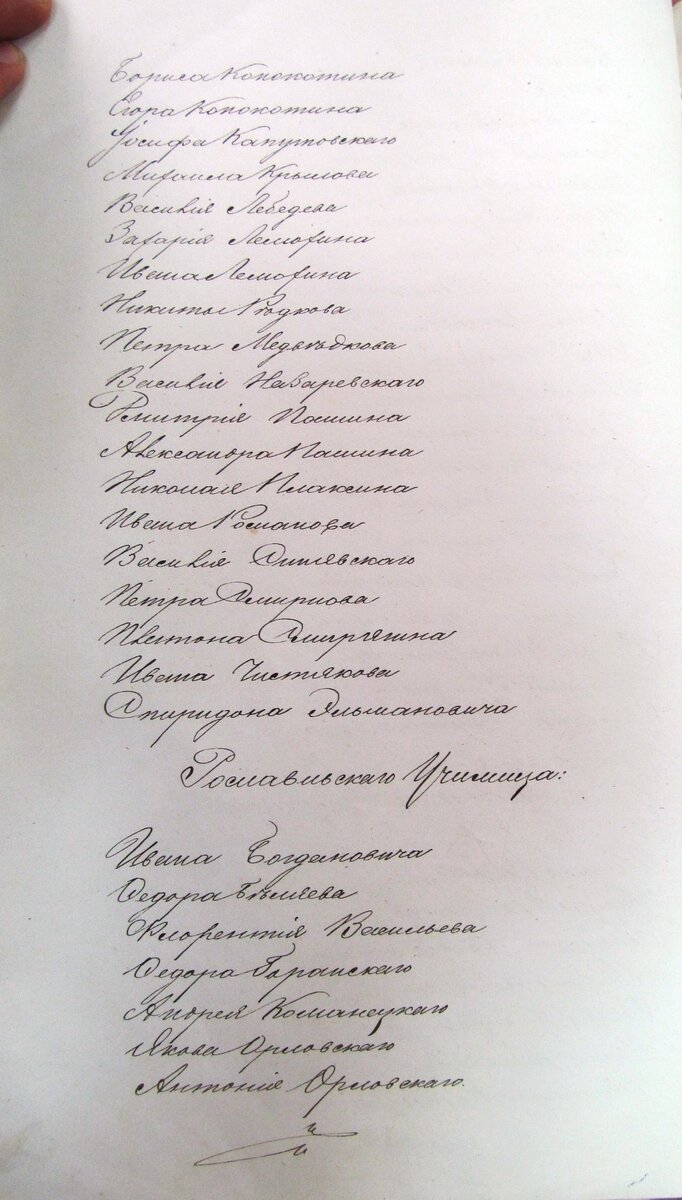 Бориса Конокотина
Егора Конокотина
Іосифа Капутовскаго
Михаила Крылова
Василія Лебедева
Захарія Лемохина
Ивана Лемохина
Никиты
Петра Медвѣдкова
Василія Назаревскаго
Дмитрія Пашина
Александра Пашина
Николая Плаксина
Ивана Романова
Василія
Петра Смирнова
Платона Смирягина
Ивана Чистякова
Спиридона Эльмановича
Рославльскаго Училища:
Ивана Богдановича
Федора Бѣляева
Флорентія Васильева
Федора Горанскаго
Андрея Команецкаго
Якова Орловскаго
Антонія Орловскаго.
и